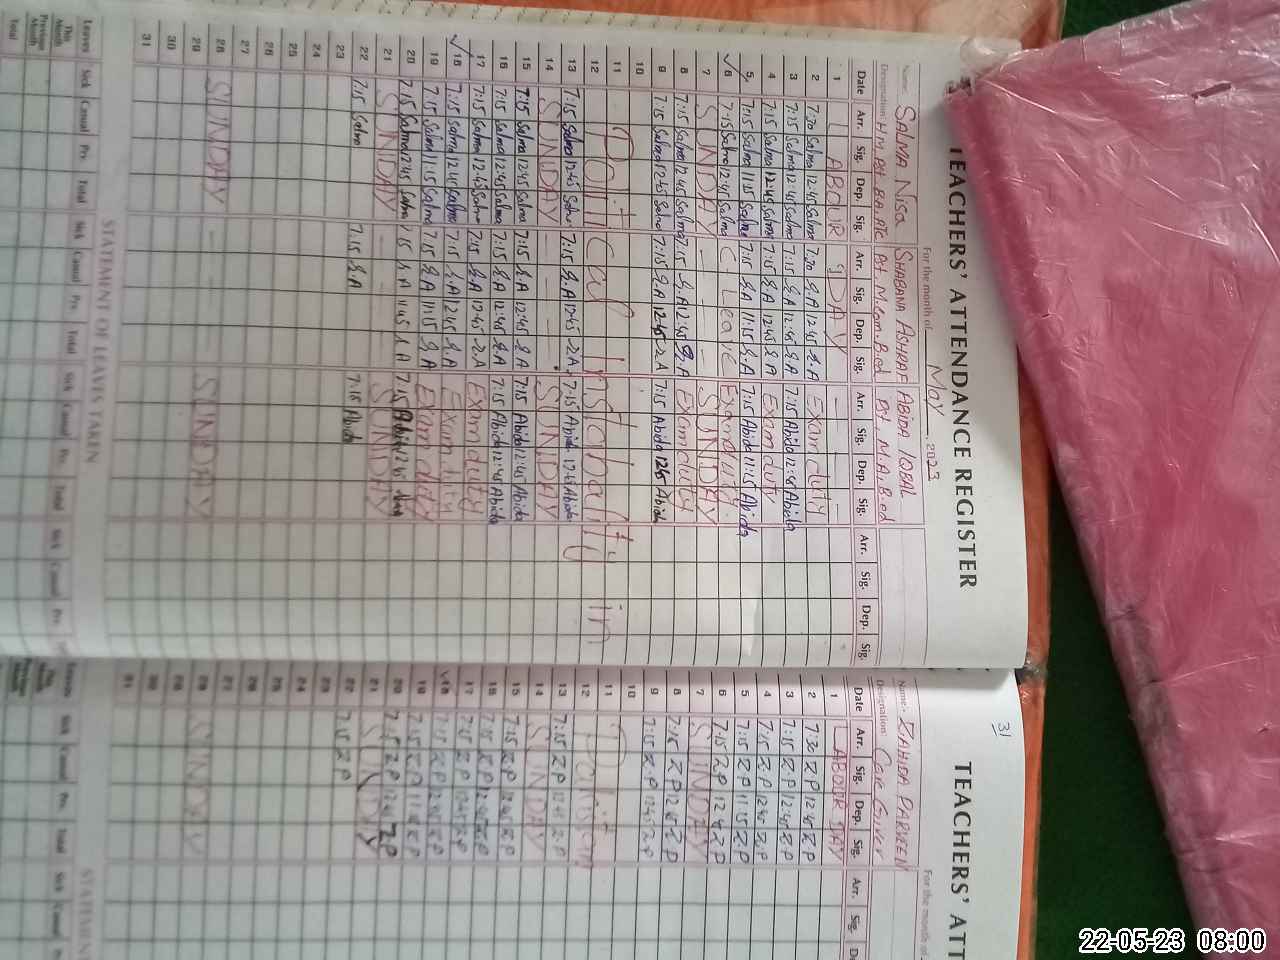 TEACHERS' ATTENDANCE REGISTER
For the month of May, 2023
Name: SALMA NISA SHABANA ASHRAF ABIDA IQBAL
Designation: H.M. Bst. M.Com. B.ed Pst, M.A, B.ed
Date Arr. Sig. Dep. Sig. Arr. Sig. Dep. Sig. Arr. Sig. Dep. Sig. Arr. Sig. Dep. Sig.
1 LABOUR DAY
2 7:30 Salma 12:45 Salma 7:30 S.A 12:45 S.A Exam duty
3 7:15 Salma 12:45 Salma 7:15 S.A 12:45 S.A 7:15 Abida 12:45 Abida
4 7:15 Salma 12:45 Salma 7:15 S.A 12:45 S.A Exam duty
5 7:15 Salma 11:15 Salma 7:15 S.A 11:15 S.A 7:15 Abida 11:15 Abida
6 7:15 Salma 12:45 Salma C. Leave Exam duty
7 SUNDAY SUNDAY
8 7:15 Salma 12:45 Salma 7:15 S.A 12:45 S.A Exam duty
9 7:15 Salma 12:45 Salma 7:15 S.A 12:45 S.A 7:15 Abida 12:45 Abida
10
11 Political instability in
12
13 7:15 Salma 12:45 Salma 7:15 S.A 12:45 S.A 7:15 Abida 12:45 Abida
14 SUNDAY SUNDAY
15 7:15 Salma 12:45 Salma 7:15 S.A 12:45 S.A 7:15 Abida 12:45 Abida
16 7:15 Salma 12:45 Salma 7:15 S.A 12:45 S.A 7:15 Abida 12:45 Abida
17 7:15 Salma 12:45 Salma 7:15 S.A 12:45 S.A Exam duty
18 7:15 Salma 12:45 Salma 7:15 S.A 12:45 S.A Exam duty
19 7:15 Salma 11:15 Salma 7:15 S.A 11:15 S.A Exam duty
20 7:15 Salma 12:45 Salma 7:15 S.A 11:45 S.A 7:15 Abida 12:45 Abida
21 SUNDAY SUNDAY
22 7:15 Salma 7:15 S.A 7:15 Abida
23
24
25
26
27
28 SUNDAY SUNDAY
29
30
31
STATEMENT OF LEAVES TAKEN
Leaves Sick Casual Prv. Total Sick Casual Prv. Total Sick Casual Prv. Total Sick Casual Prv.
This Month
Previous Month
Total
31
TEACHERS' ATT
For the month of
Name: ZAHIDA PARVEEN
Designation: Care Giver
Date Arr. Sig. Dep. Sig. Arr. Sig.
1 LABOUR DAY
2 7:30 Z.P 12:45 Z.P
3 7:15 Z.P 12:45 Z.P
4 7:15 Z.P 12:45 Z.P
5 7:15 Z.P 11:15 Z.P
6 7:15 Z.P 12:45 Z.P
7 SUNDAY
8 7:15 Z.P 12:45 Z.P
9 7:15 Z.P 12:45 Z.P
10
11
12
13 7:15 Z.P 12:45 Z.P
14 SUNDAY
15 7:15 Z.P 12:45 Z.P
16 7:15 Z.P 12:45 Z.P
17 7:15 Z.P 12:45 Z.P
18 7:15 Z.P 12:45 Z.P
19 7:15 Z.P 11:15 Z.P
20 7:15 Z.P 12:45 Z.P
21 SUNDAY
22 7:15 Z.P
23
24
25
26
27
28 SUNDAY
29
30
31
STATEMEN
Leaves Sick Casual Prv. Total Sick Casual
22-05-23 08:00